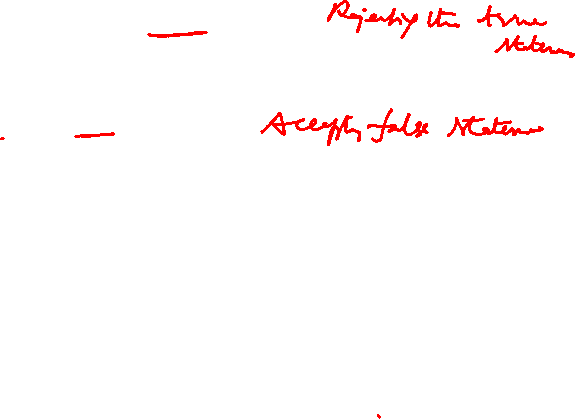 — Rejecting the true
statem
— Accepting false statem